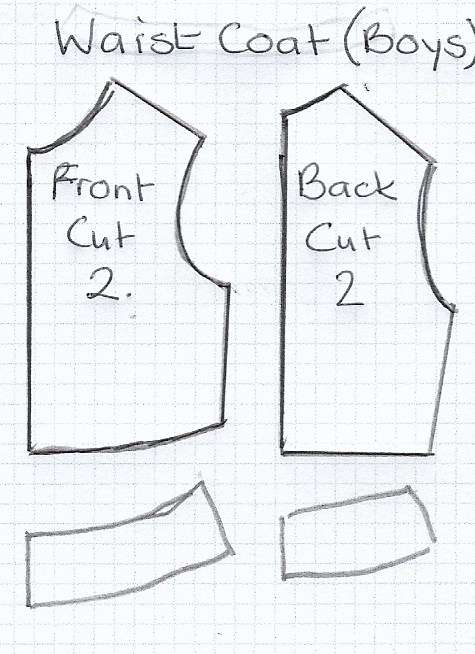 Waist Coat (Boys)
Front
Cut
2.
Back
Cut
2